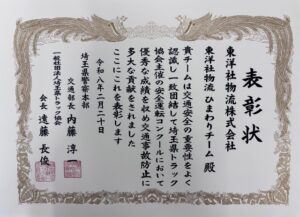 表彰状
東洋社物流株式会社
東洋社物流 ひまわりチーム 殿
貴チームは交通安全の重要性をよく
認識し一致団結して埼玉県トラック
協会主催の安全運転コンクールにおいて
優秀な成績を収め交通事故防止に
多大な貢献をされました
ここにこれを表彰します
令和八年二月二十日
埼玉県警察本部
交通部長 内藤 淳一
一般社団法人埼玉県トラック協会
会長 遠藤 長俊